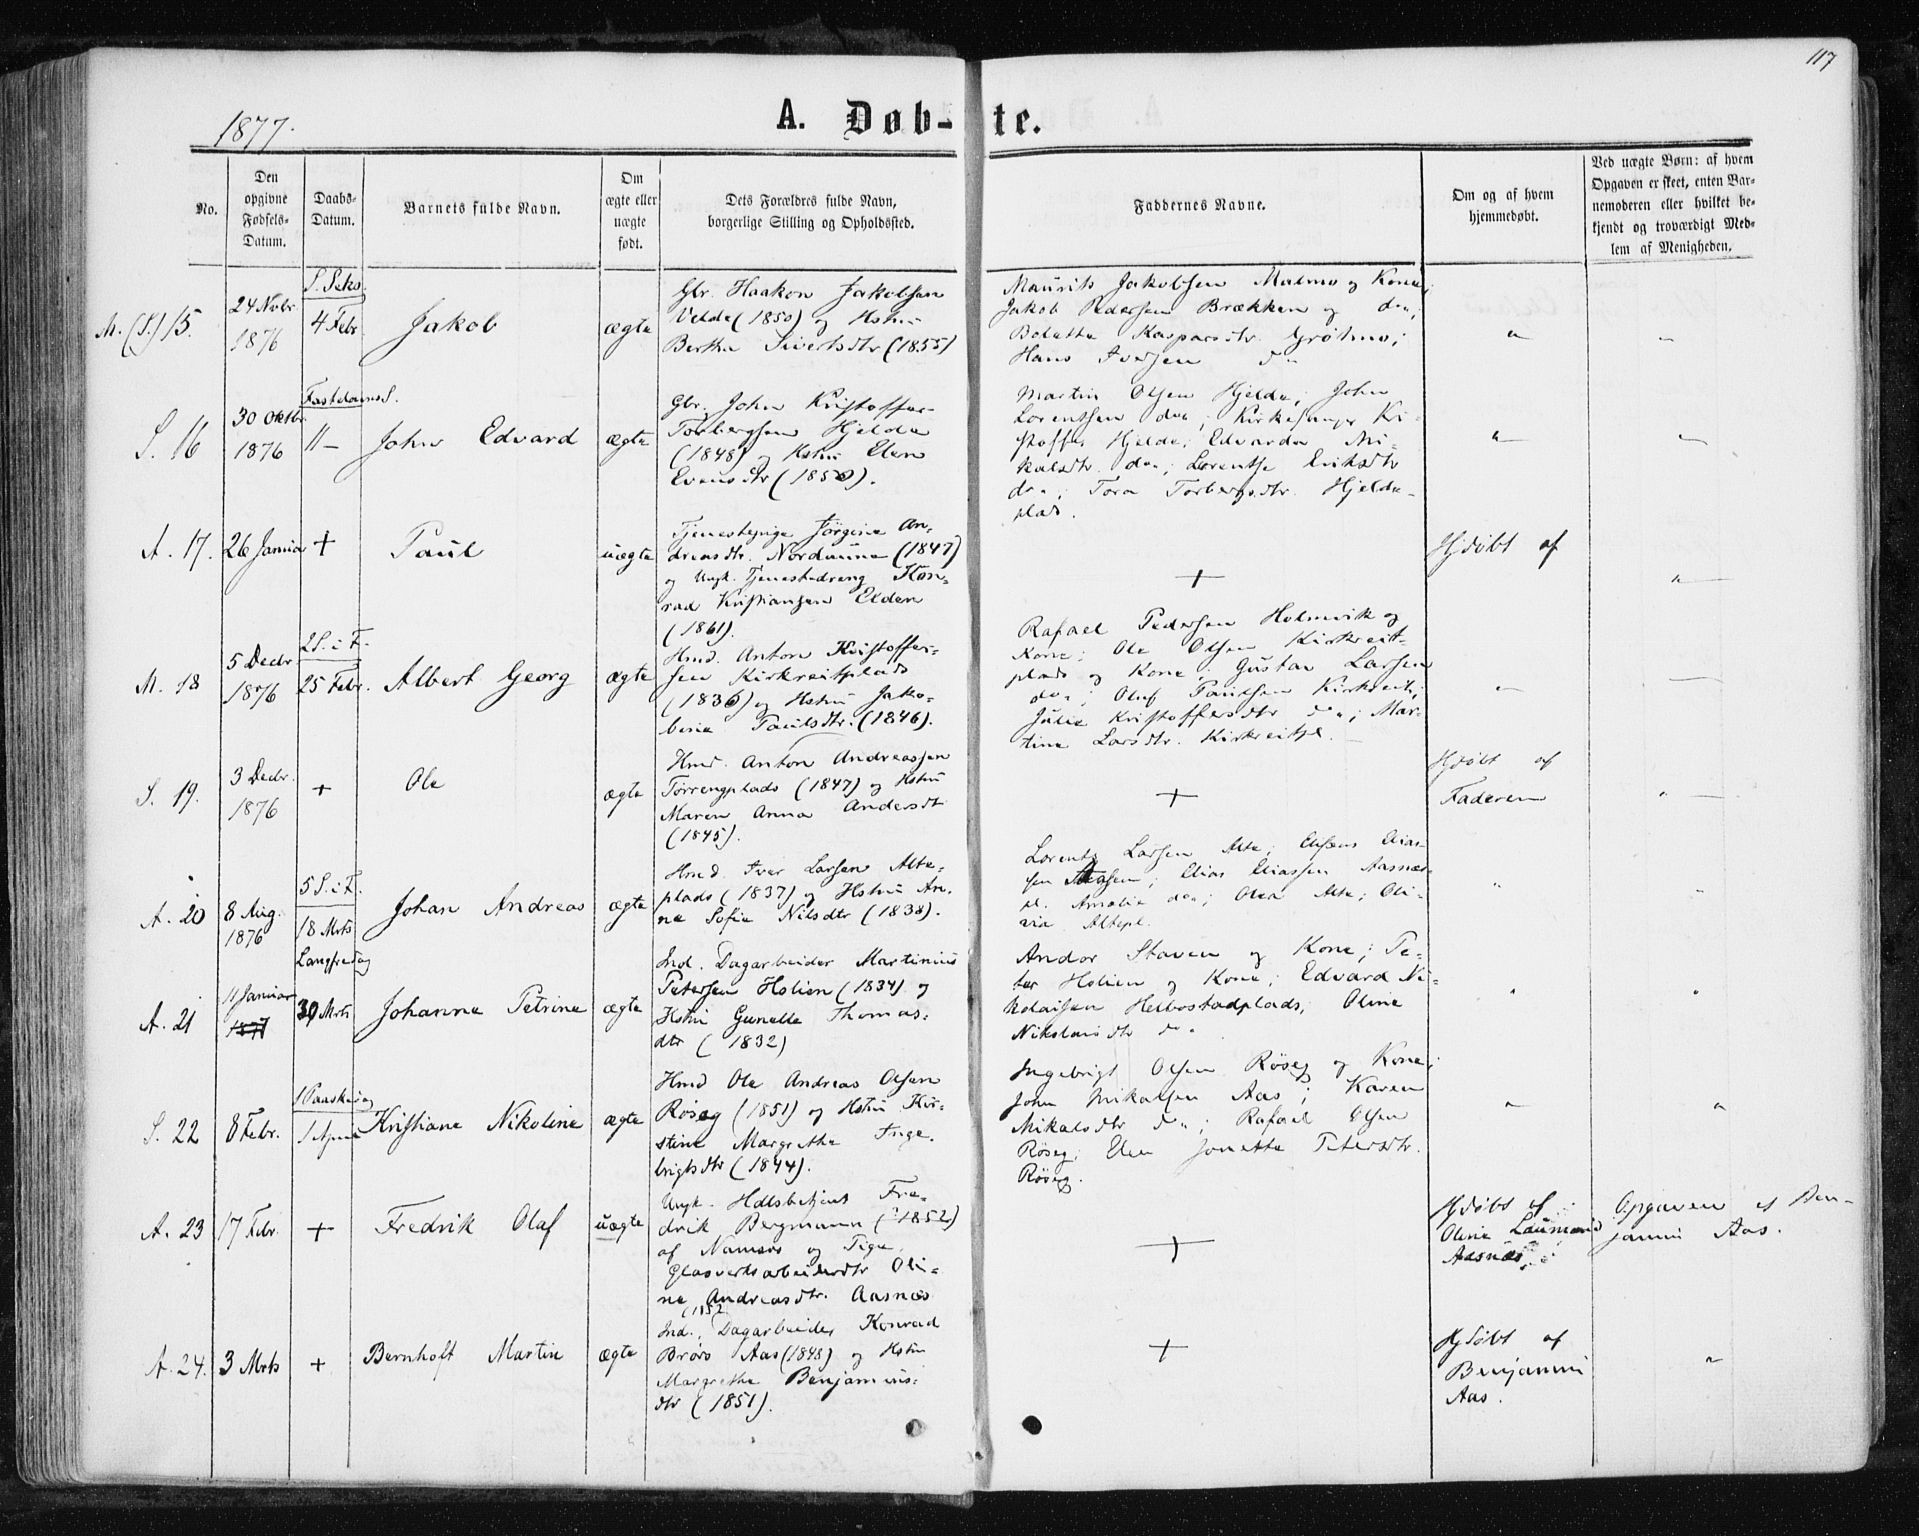 117
1877.
A. Døb-te.
No.
Den opgivne Fødsels-Datum.
Daabs-Datum.
Barnets fulde Navn.
Om ægte eller uægte født.
Dets Forældres fulde Navn, borgerlige Stilling og Opholdssted.
Faddernes Navne.
Om og af hvem hjemmedøbt.
Ved uægte Børn: af hvem Opgaven er skeet, enten Barnemoderen eller hvilket bekjendt og troværdigt Medlem af Menigheden.
M. (S.) 15.
24 Novbr 1876
S. Seks.
4 Febr.
Jakob
ægte
Gbr. Haakon Jakobsen
Velde (1850) og Hstru
Bertha Sivertsdtr (1855)
Maurits Jakobsen Malmo og Kone;
Jakob Pedersen Brækken og do;
Boletta Kasparsdtr. Grøtmo;
Hans Iversen do
S. 16
30 Oktbr 1876
Fastelavns S.
11 —
John Edvard
ægte
Gbr. John Kristoffer
Torbergsen Hjelde
(1848) og Hstru Elen
Evensdtr (1850).
Martin Olsen Hjelde; John
Lorentsen do; Kirkesanger Kri-
stoffer Hjelde; Edvarda Mi-
kalsdtr. do; Lorentse Eriksdtr
do; Tora Torbergsdtr. Hjelde-
plads.
A. 17.
26 Januar
+
Paul
uægte
Tjenestepige Jørgine An-
dreasdtr. Nordaune (1847)
og Ungk. Tjenestedreng Kon-
rad Kristiansen Elden
(1861).
+
Hjdøbt af
M. 18
5 Decbr 1876
2 S. i F.
25 Febr.
Albert Georg
ægte
Hmd. Anton Kristoffer-
sen Kirkreitplads
(1836) og Hstru Jako-
bine Paulsdtr. (1846).
Rafael Pedersen Holmvik og
Kone; Ole Olsen Kirkreit-
plads og Kone; Gustav Larsen
do; Oluf Paulsen Kirkreit;
Julie Kristoffersdtr do; Mar-
tine Larsdtr. Kirkreitpl.
S. 19.
3 Decbr. 1876
+
Ole
ægte
Hmd. Anton Andreassen
Tørrengplads (1847) og Hstru
Maren Anna Andersdt
(1845).
+
Hjdøbt af
Faderen
A. 20
8 Aug. 1876
5 S. i F.
18 Mrts
Johan Andreas
ægte
Hmd. Iver Larsen Alte-
plads (1837) og Hstru An-
ne Sofie Nilsdtr (1838).
Lorents Larsen Alte; Elisæus Elias-
sen; Elias Eliassen Aasnes-
pl. Amalie do; Olea Alte; Oli-
via Altepl.
A. 21
11 Januar 1877
Langfredag
30 Mrts
Johanna Petrine
ægte
Ind. Dagarbeider Martinius
Petersen Holien (1834) og
Hstru Gunelle Thomas-
dtr (1832)
Andor Staven og Kone; Pe-
ter Holien og Kone; Edvard Ni-
kolaisen Helbostadplads; Oline
Nikolaisdtr do
S. 22
8 Febr.
1 Paaskedag
1 April
Kristiane Nikoline
ægte
Hmd Ole Andreas Olsen
Røseg (1851) og Hstru Kir-
stine Margrethe Inge-
brigtsdtr (1844).
Ingebrigt Olsen Røseg og Kone;
John Mikalsen Aas; Karen
Mikalsdtr do; Rafael Olsen
Røseg; Elen Jonetta Petersdtr.
Røseg.
A. 23
17 Febr.
+
Fredrik Olaf
uægte
Ungk. Hdlsbetjent Fre-
drik Bergmann (1852)
af Namsos og Pige,
Glasverksarbeiderdtr Oli-
ne Andreasdtr. Aasnes
(1852
+
Hjdøbt af
Oline Laumand
Aasnes;
Opgaven af Ben-
jamin Aas.
A. 24.
3 Mrts
+
Bernhoft Martin
ægte
Ind., Dagarbeider Konrad
Brørs Aas (1848) og Hstru
Margrethe Benjamins-
dtr (1851).
+
Hjdøbt af
Benjamin
Aas.